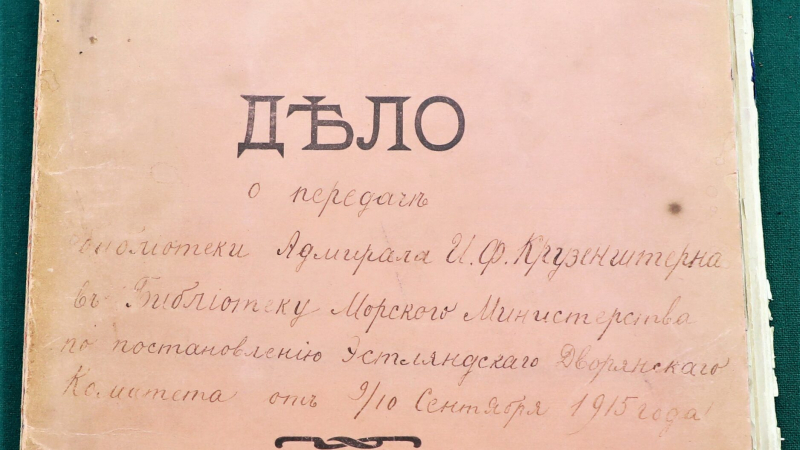 ДѢЛО
о передачѣ
Библіотеки Адмирала И. Ф. Крузенштерна
въ Библіотеку Морского Министерства
по постановленію Эстляндскаго Дворянскаго
Комитета отъ 9/10 Сентября 1915 года